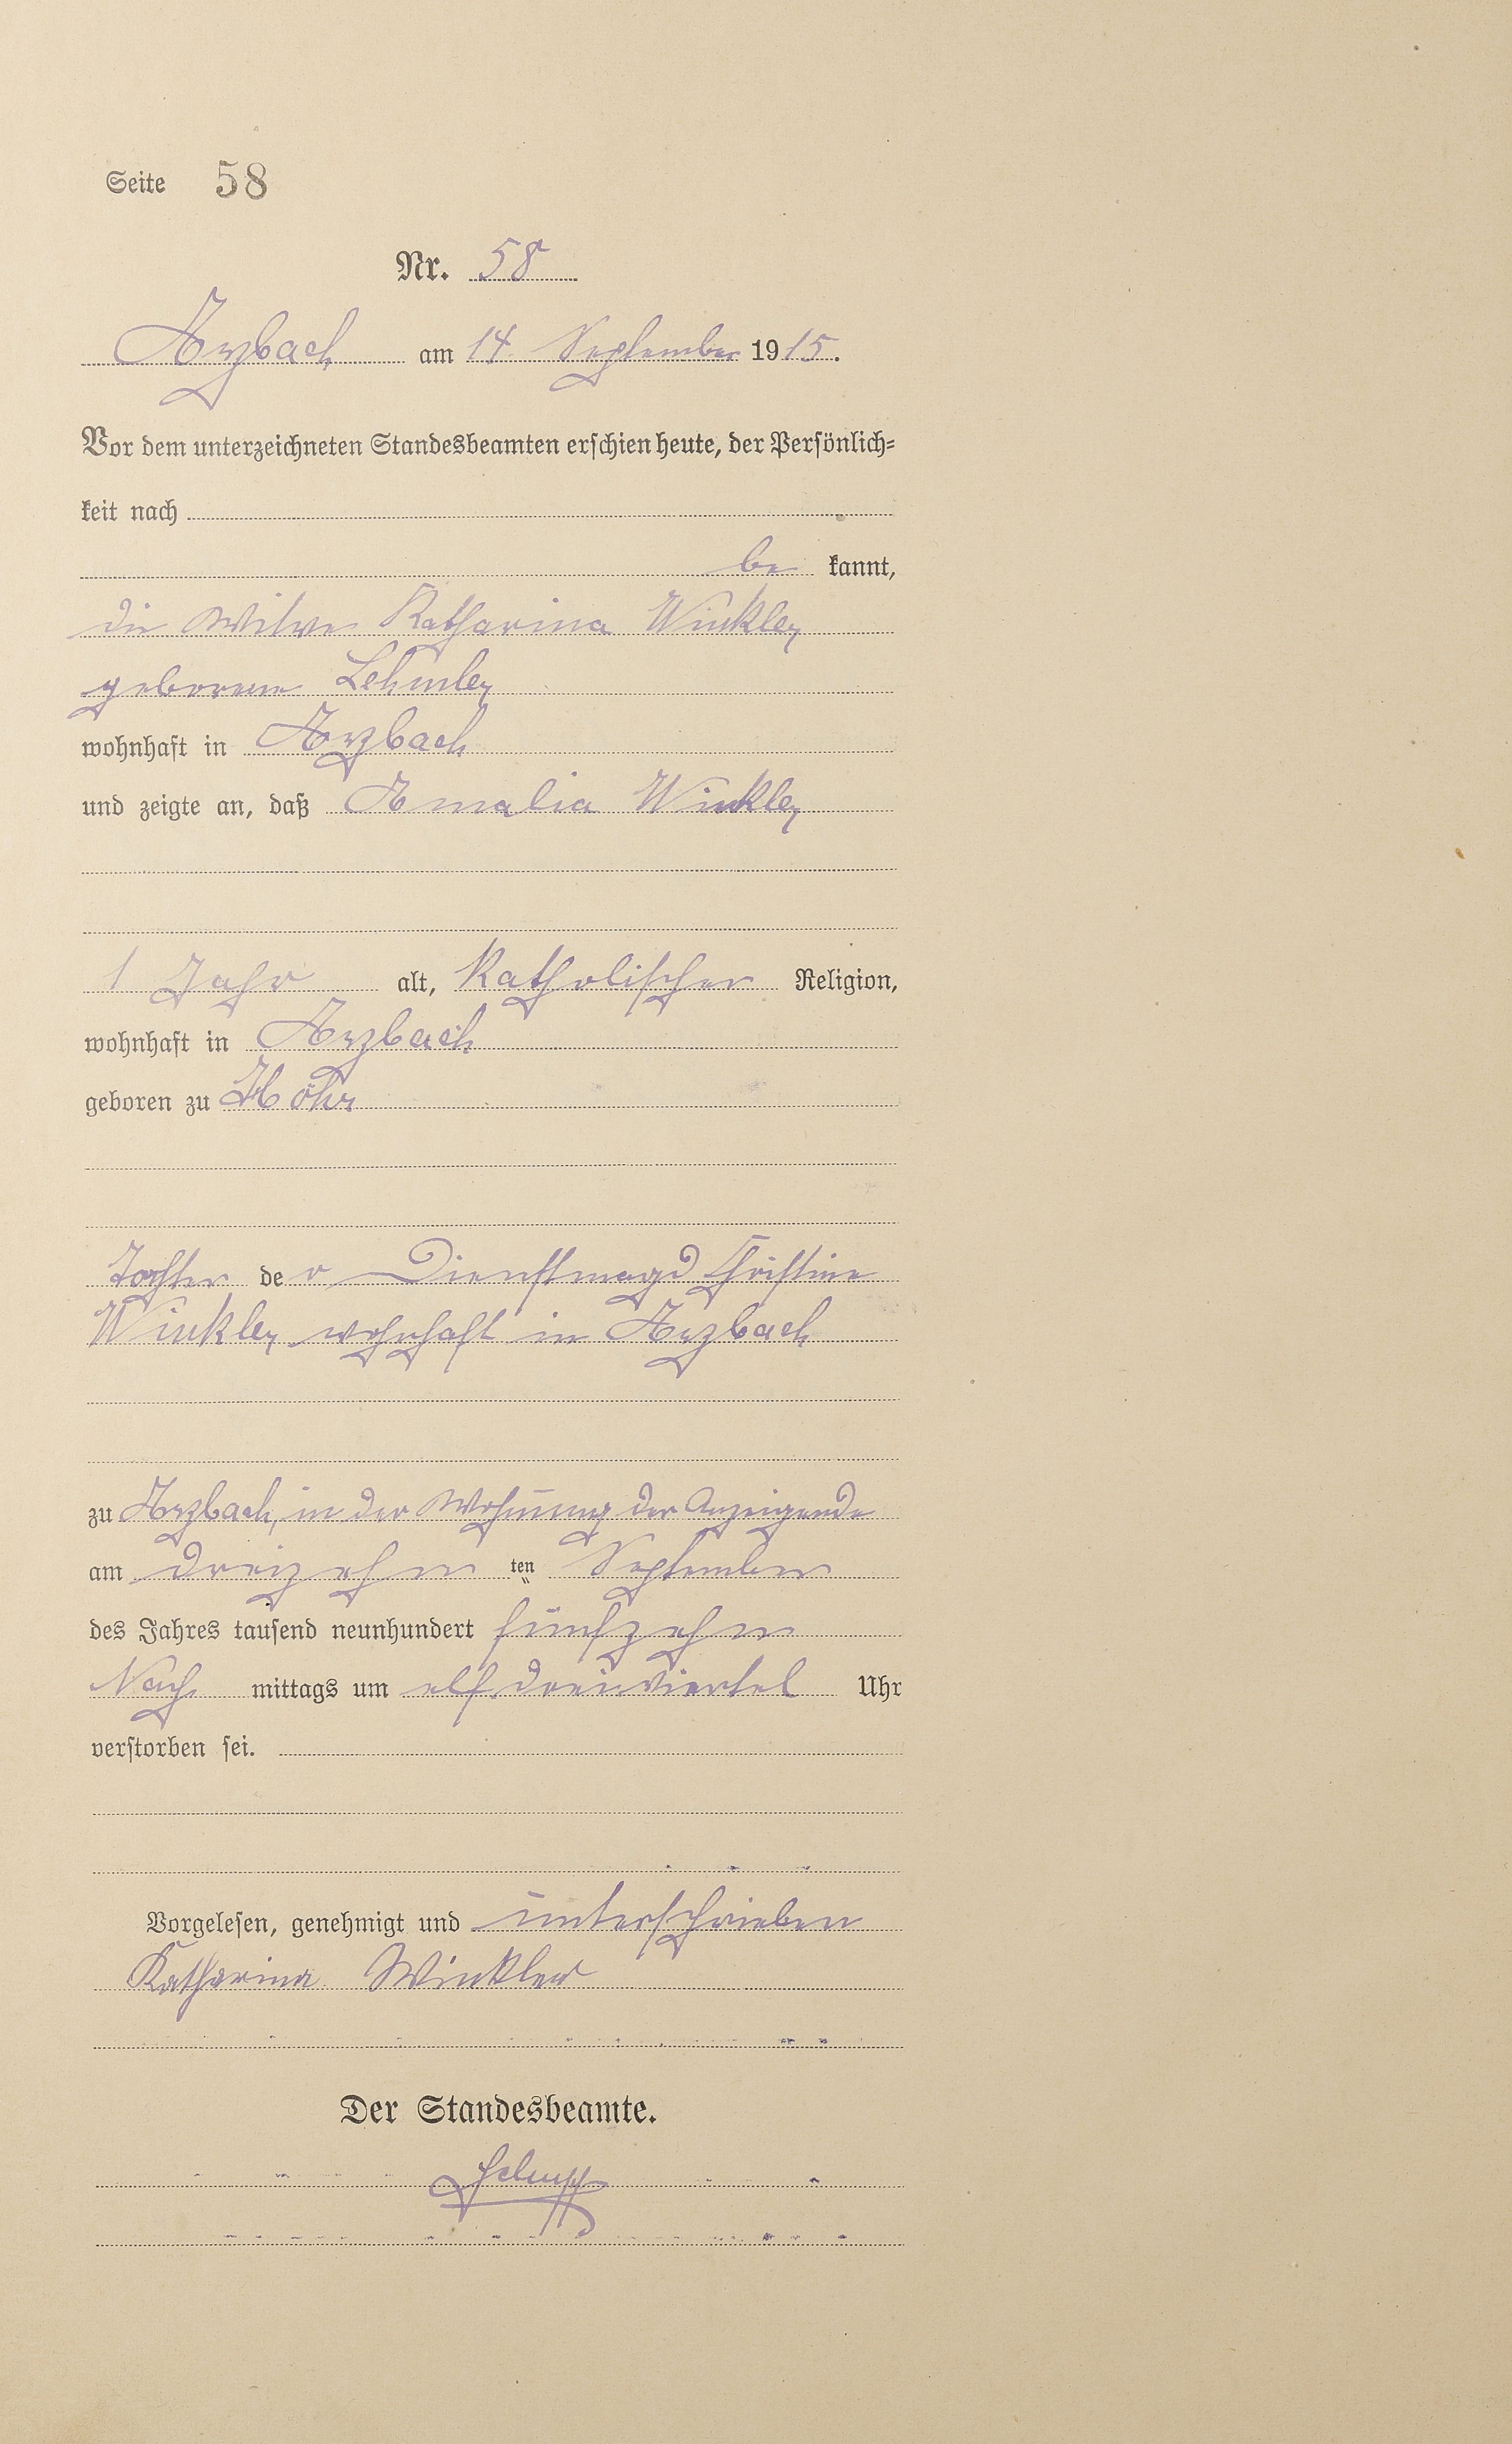 Seite 58
Nr. 58
Arzbach am 14 September 1915.
Vor dem unterzeichneten Standesbeamten erschien heute, der Persönlich-
keit nach
be kannt,
die Witwe Katharina Winkler
geborene
wohnhaft in Arzbach
und zeigte an, daß Amalia Winkler
1 Jahr alt, Katholischer Religion,
wohnhaft in Arzbach
geboren zu Höhr
Tochter der Dienstmagd Christine
Winkler wohnhaft in Arzbach
zu Arzbach, in der Wohnung der Anzeigende
am dreizehn ten September
des Jahres tausend neunhundert fünfzehn
Nach mittags um elf dreiviertel Uhr
verstorben sei.
Vorgelesen, genehmigt und unterschrieben
Katharina Winkler
Der Standesbeamte.